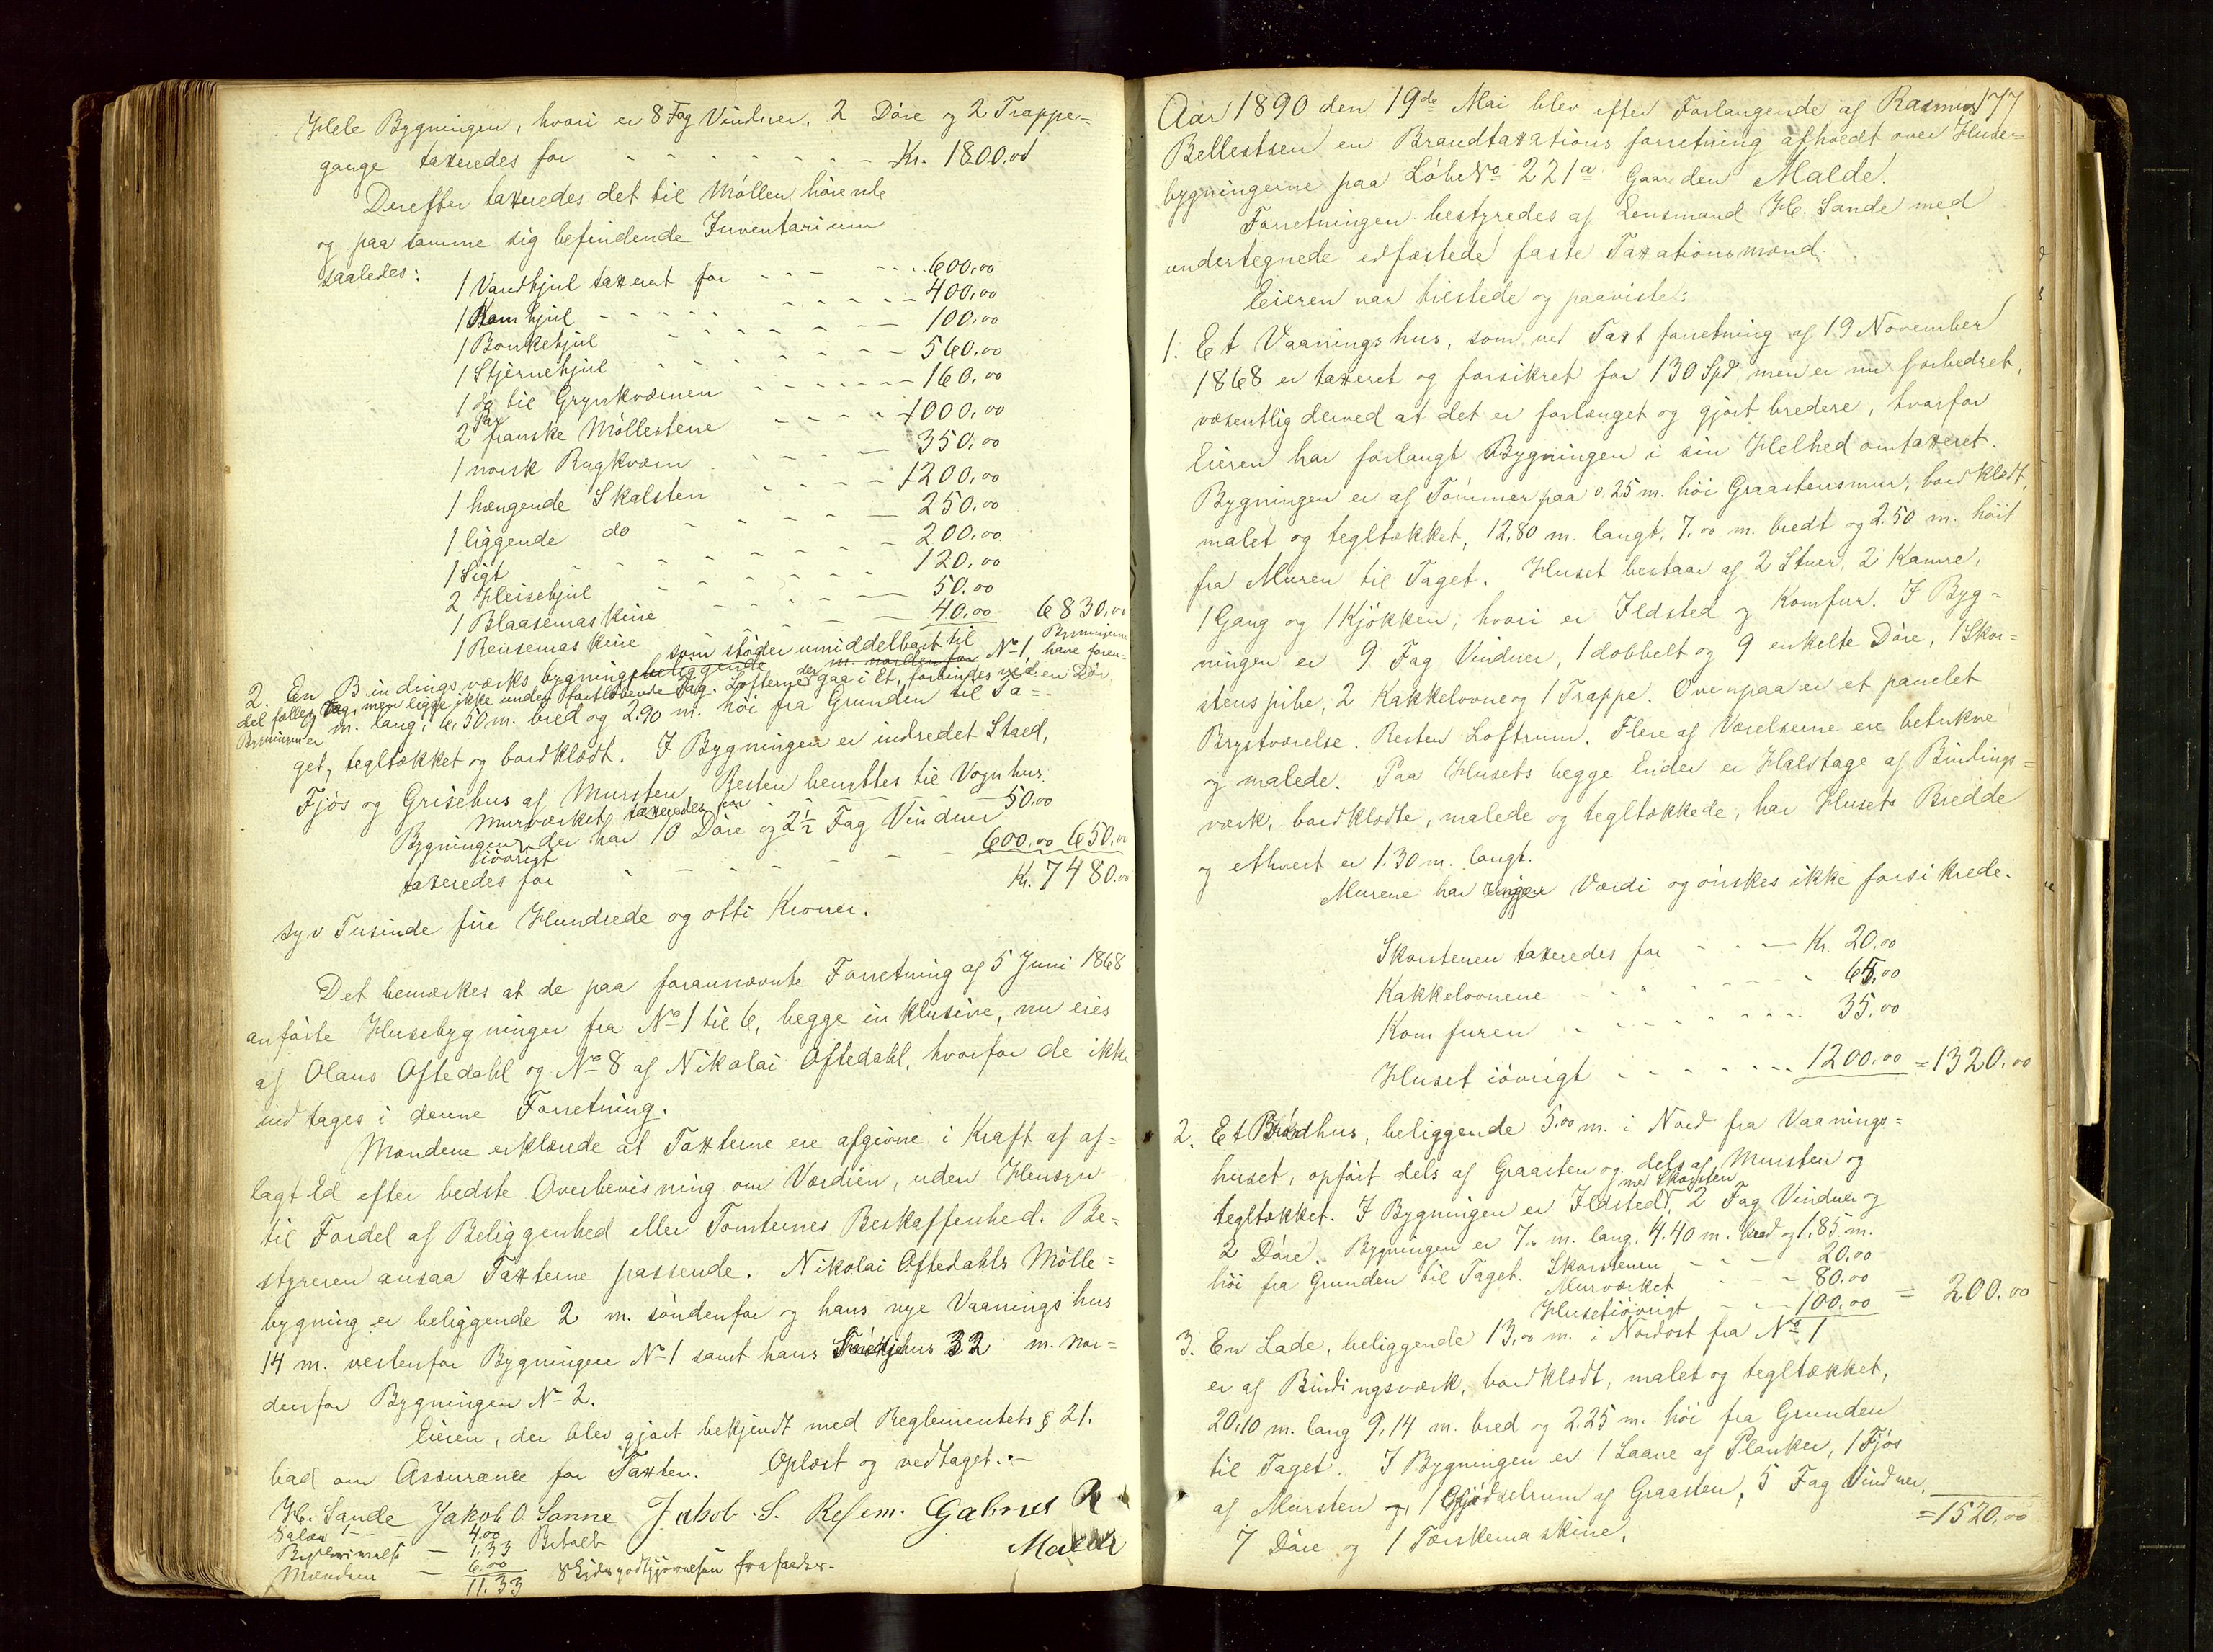 Hele Bygningen, hvori er 8 Fag Vinduer, 2 Döre og 2 Trappe=
gange taxeredes for - - - - - - - - Kr. 1800,00
Derefter taxeredes det til Möllen hörende
og paa samme sig befindende Inventarium
saaledes:
1 Vandhjul taxeret for - - - - - - 600,00
1 Kamhjul - - - - - - - - - - 400,00
1 Bonkehjul - - - - - - - 100,00
1 Stjernehjul - - - - - - - - 560,00
1 do til Grynkværnen - - - - - - - 160,00
2 Par franske Möllestene - - - - 1000,00
1 norsk Rugkværn - - - - - 350,00
1 hængende Skalsten - - - - 1200,00
1 liggende do - - - - - - 250,00
1 Sigt - - - - - - - - 200,00
2 Heisehjul - - - - - - 120,00
1 Blaasemaskine - - - - - - 50,00
1 Rensemaskine - - - - - - 40,00 6830,00
2. En Bindingsværks bygning, beliggende som støder umiddelbart til m. norden for No 1, Bygningerne have foren=
del fælles Væg, men ligge ikke under fortløbende Tag. Lofterne der gaa i Et, forbindes ved en Dør,
Bygningen er m. lang, 6,50 m. bred og 2.90 m. höi fra Grunden til Ta=
get, tegltækket og bordklædt. I Bygningen er indredet Stald,
Fjös og Grisehus af Mursten, Resten benyttes til Vognhus.
Murværket taxeredes for - - - - - 50,00
Bygningen iövrigt der har 10 Döre og 2½ Fag Vinduer
taxeredes for - - - - - - - 600,00 650,00
Kr. 7480,00
syv Tusinde fire Hundrede og otti Kroner.
Det bemærkes at de paa forannævnte Forretning af 5 Juni 1868
anförte Husebygninger fra No 1 til 6, begge inklusive, nu eies
af Olaus Oftedahl og No 8 af Nikolai Oftedahl, hvorfor de ikke
indtages i denne Forretning.
Mændene erklærede at Taxterne ere afgivne i Kraft af af=
lagt Ed efter bedste Overbevisning om Værdien, uden Hensyn
til Fordel af Beliggenhed eller Tomternes Beskaffenhed. Be=
styreren ansaa Taxterne passende. Nikolai Oftedahls Mölle=
bygning er beliggende 2 m. söndenfor og hans nye Vaaningshus
14 m. vestenfor Bygningen No 1 samt hans 32 m. nor=
denfor Bygningen No 2.
Eieren, der blev gjort bekjendt med Reglementets § 21.
bad om Assurance for Taxten. Oplæst og vedtaget. -
H. Sande Jakob O. Sanne Jakob S. Refsem. Gabriel R
Malde
4.00
1.33 Betalt
Mændene - 6.00
11.33
Aar 1890 den 19de Mai blev efter Forlangende af Rasmus 177
Bellestsen en Brandtaxationsforretning afholdt over Huse=
bygningerne paa Löbe No 221a Gaarden Malde.
Forretningen bestyredes af Lensmand H. Sande med
undertegnede edfæstede faste Taxationsmænd.
Eieren var tilstede og paaviste:
1. Et Vaaningshus, som ved Taxtforretning af 19 November
1868 er taxeret og forsikret for 130 Spd, men er nu forbedret,
væsentlig derved at det er forlænget og gjort bredere, hvorfor
Eieren har forlangt Bygningen i sin Helhed omtaxeret.
Bygningen er af Tömmer paa 0,25 m. höi Graastensmur, bordklædt,
malet og tegltækket, 12,80 m. langt, 7,00 m. bredt og 2.50 m. höit
fra Muren til Taget. Huset bestaar af 2 Stuer, 2 Kamre,
1 Gang og 1 Kjökken, hvori er Ildsted og Komfur. I Byg=
ningen er 9 Fag Vinduer, 1 dobbelt og 9 enkelte Döre, 1 Skor=
stenspibe, 2 Kakkelovne og 1 Trappe. Ovenpaa er et panelet
Brystværelse. Resten Loftrum. Flere af Værelserne ere betrukne
og malede. Paa Husets begge Ender er Halvtage af Bindings=
værk, bordklædte, malede og tegltækkede, har Husets Bredde
og ethvert er 1.30 m. langt.
Murene har ringe Værdi og önskes ikke forsikrede.
Skorstenen taxeredes for - - - Kr. 20,00
Kakkelovnene - - - - - - - 65,00
Komfuren - - - - - - - - 35,00
Huset iövrigt - - - - - - - 1200,00 = 1320,00
2. Et Brödhus, beliggende 5,00 m. i Nord fra Vaanings=
huset, opfört dels af Graasten og dels af Mursten og
tegltækket. I Bygningen er Ildsted med Skorsten, 2 Fag Vinduer og
2 Döre. Bygningen er 7,00 m. lang, 4.40 m. bred og 1,85 m.
höi fra Grunden til Taget. Skorstenen - - - 20.00
Murværket - - - 80.00
Huset iövrigt - - - 100,00 = 200,00
3. En Lade, beliggende 13,00 m. i Nordost fra No 1
er af Bindingsværk, bordklædt, malet og tegltækket,
20,10 m. lang 9,14 m. bred og 2.25 m. höi fra Grunden
til Taget. I Bygningen er 1 Laave af Planker, 1 Fjös
af Mursten og 1 Gjödselrum af Graasten, 5 Fag Vinduer,
7 Döre og 1 Tærskemaskine. = 1520,00